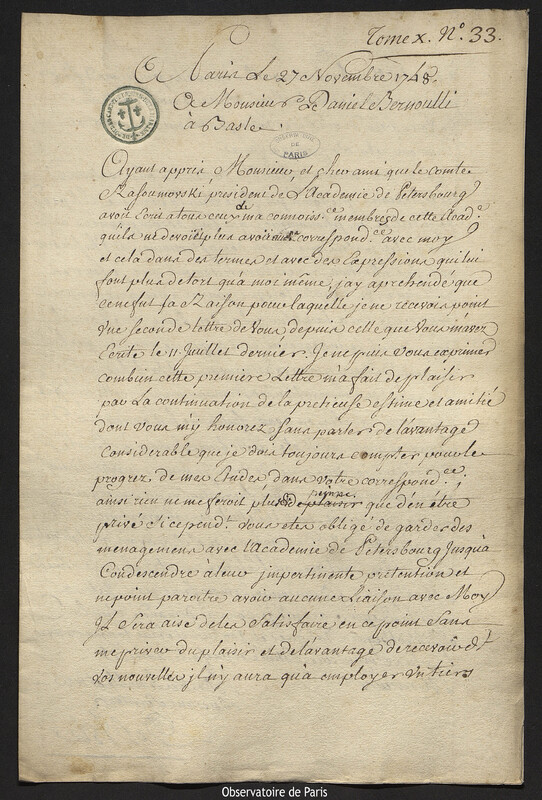 Tome X. N.º 33.
A Paris Le 27 Novembre 1748.
A Monsieur Daniel Bernoulli
à Basle.
PARIS
Ayant appris Monsieur, et cher ami que le comte
Rasoumovski président de L'Academie de Petersbourg
avoit Ecrit a tous ceux de ma connoiss.ce membres de cette Acad.e
qu'ils ne devoit plus avoir de correspond.ce avec moy
et cela dans des termes et avec des Expressions qui lui
font plus de tort qu'à moi même, j'ay aprehendé que
ce ne fut la Raison pour laquelle je ne recevois point
une seconde lettre de vous, depuis celle que vous m'avez
Ecrite le 11. Juillet dernier. Je ne puis vous exprimer
combien cette premiere Lettre m'a fait de plaisir
par La continuation de la pretieuse estime et amitié
dont vous m'y honorez sans parler de l'avantage
Considerable que je dois toujours compter pour le
progrez de mes Etudes, dans votre correspond.ce;
ainsi rien ne me feroit plus de plaisir peinne que d'en être
privé si cepend.t vous etes obligé de garder des
menagemens avec l'Academie de Petersbourg jusqu'à
Condescendre à leur jmpertinente pretention et
ne point paroître avoir aucune Liaison avec Moy
Jl sera aisé de les Satisfaire en ce point Sans
me priver du plaisir et de l'avantage de recevoir de
vos nouvelles jl n'y aura qu'a employer un tiers
Observatoire de Paris